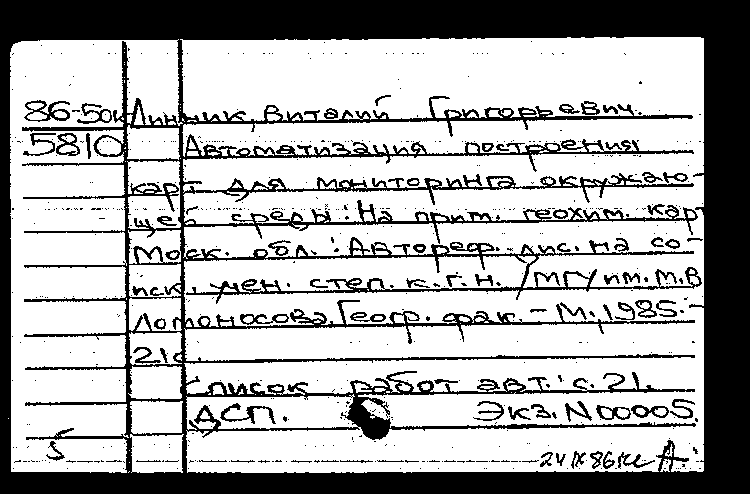 86-5ок Линник, Виталий Григорьевич.
5810 Автоматизация построения
карт для мониторинга окружаю-
щей среды: На прим. геохим. карт
Моск. обл.: Автореф. дис. на со-
иск. учен. степ. к.г.н. / МГУ им. М.В
Ломоносова, Геогр. фак. - М., 1985. -
21с.
Список работ авт.: с. 21.
ДСП. Экз. N 00005.
5
24 IX 86